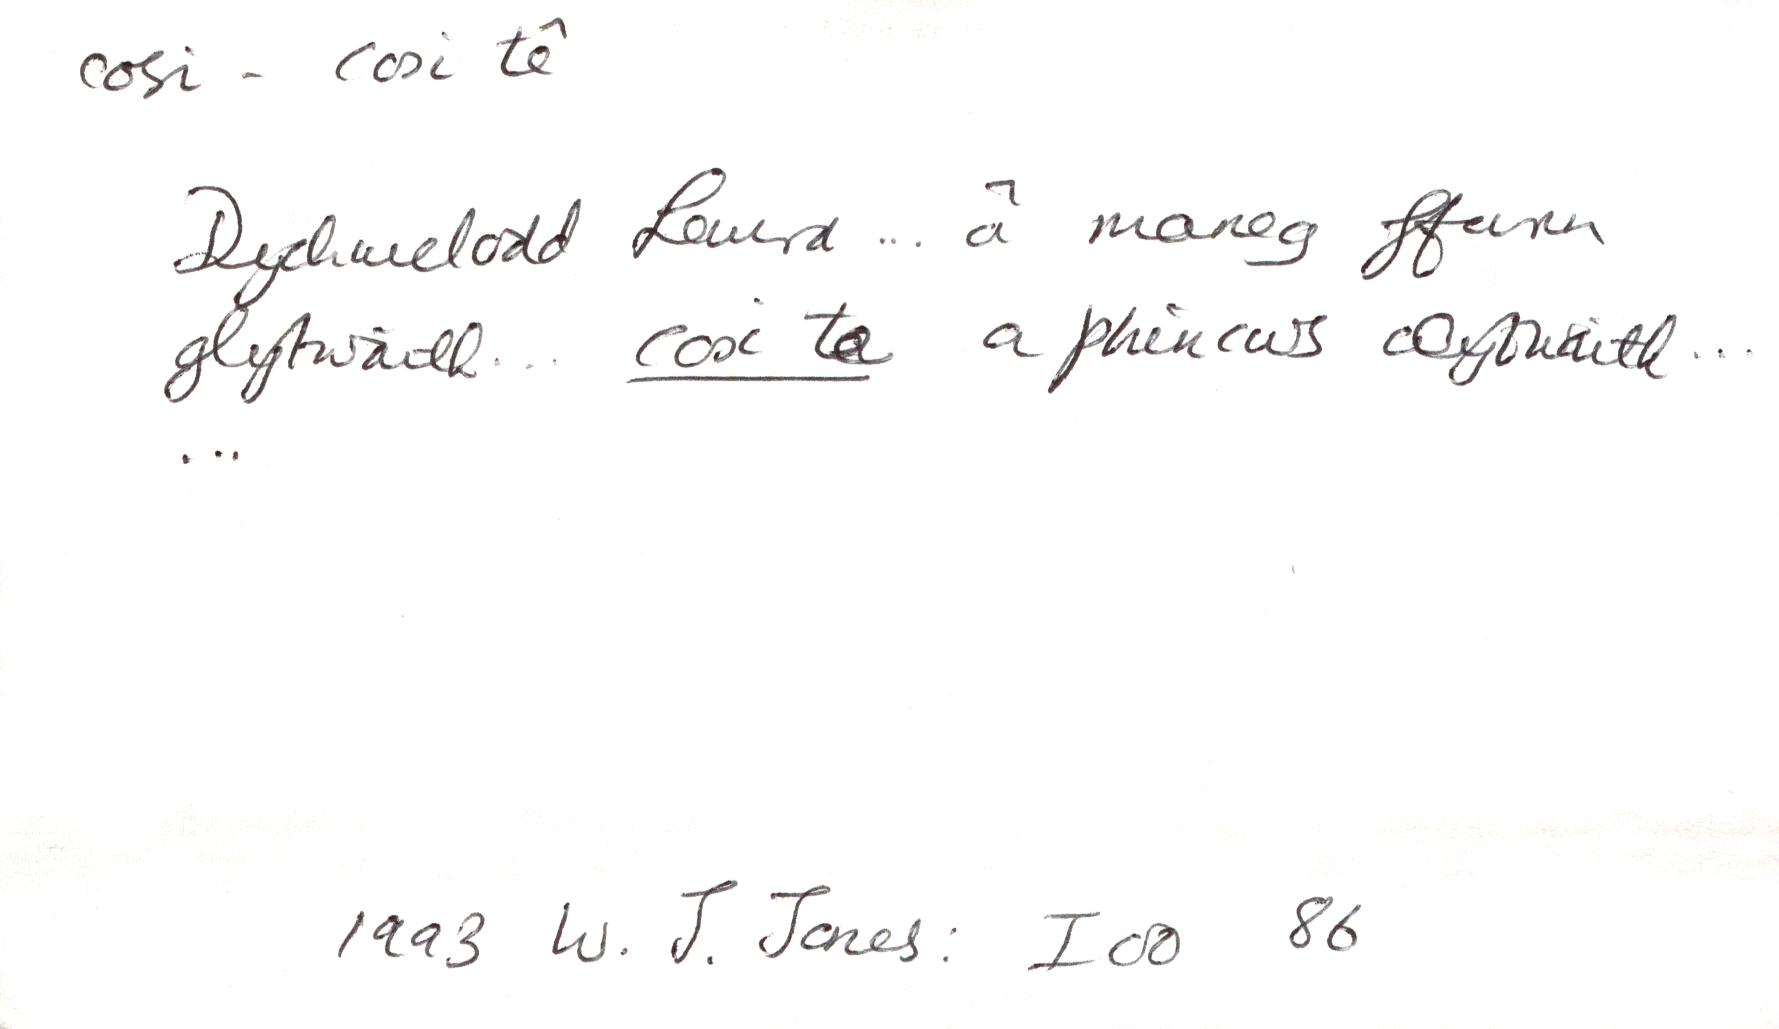 cosi - cosi tê
Dychwelodd Laura ... â maneg ffwrn
glytwaith ... cosi te a phincws clytwaith ...
...
1993 W. J. Jones: I 00 86